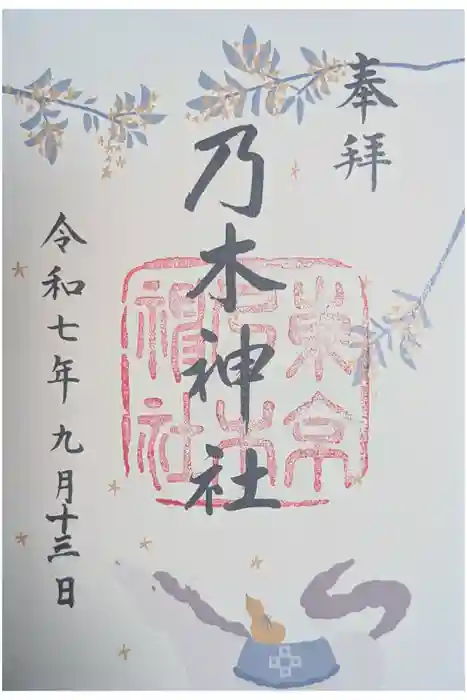 奉拝
乃木神社
東京乃木神社
令和七年九月十三日